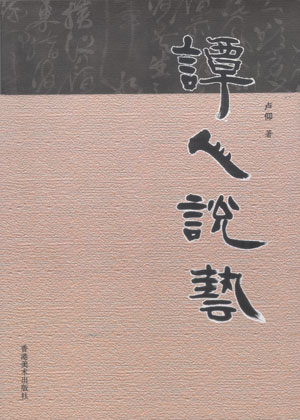 譚人説藝
卢仰 著
香港美术出版社